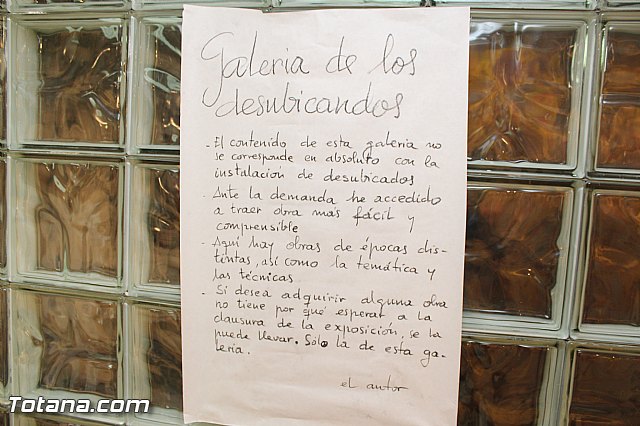 Galeria de los
desubicandos
- El contenido de esta galeria no
se corresponde en absoluto con la
instalacion de desubicados
- Ante la demanda he accedido
a traer obra más fácil y
comprensible
- Aquí hay obras de épocas dis-
tintas, así como la temática y
las técnicas
- Si desea adquirir alguna obra
no tiene por qué esperar a la
clausura de la exposición, se la
puede llevar. Sólo la de esta ga-
leria.
el autor
Totana.com